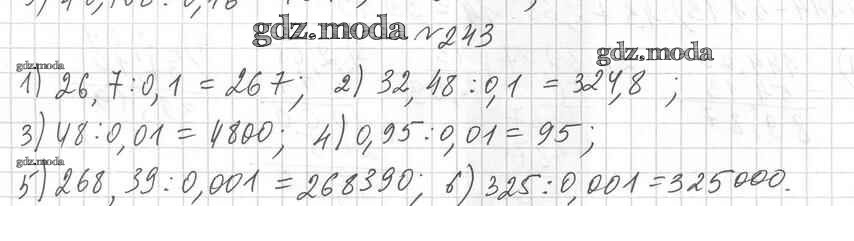 gdz.moda №243
gdz.moda
gdz.moda
1) 26,7:0,1 = 267; 2) 32,48:0,1 = 324,8 ;
3) 48:0,01 = 4800; 4) 0,95:0,01 = 95;
gdz.moda
5) 268,39:0,001 = 268390; 6) 325:0,001 = 325000.